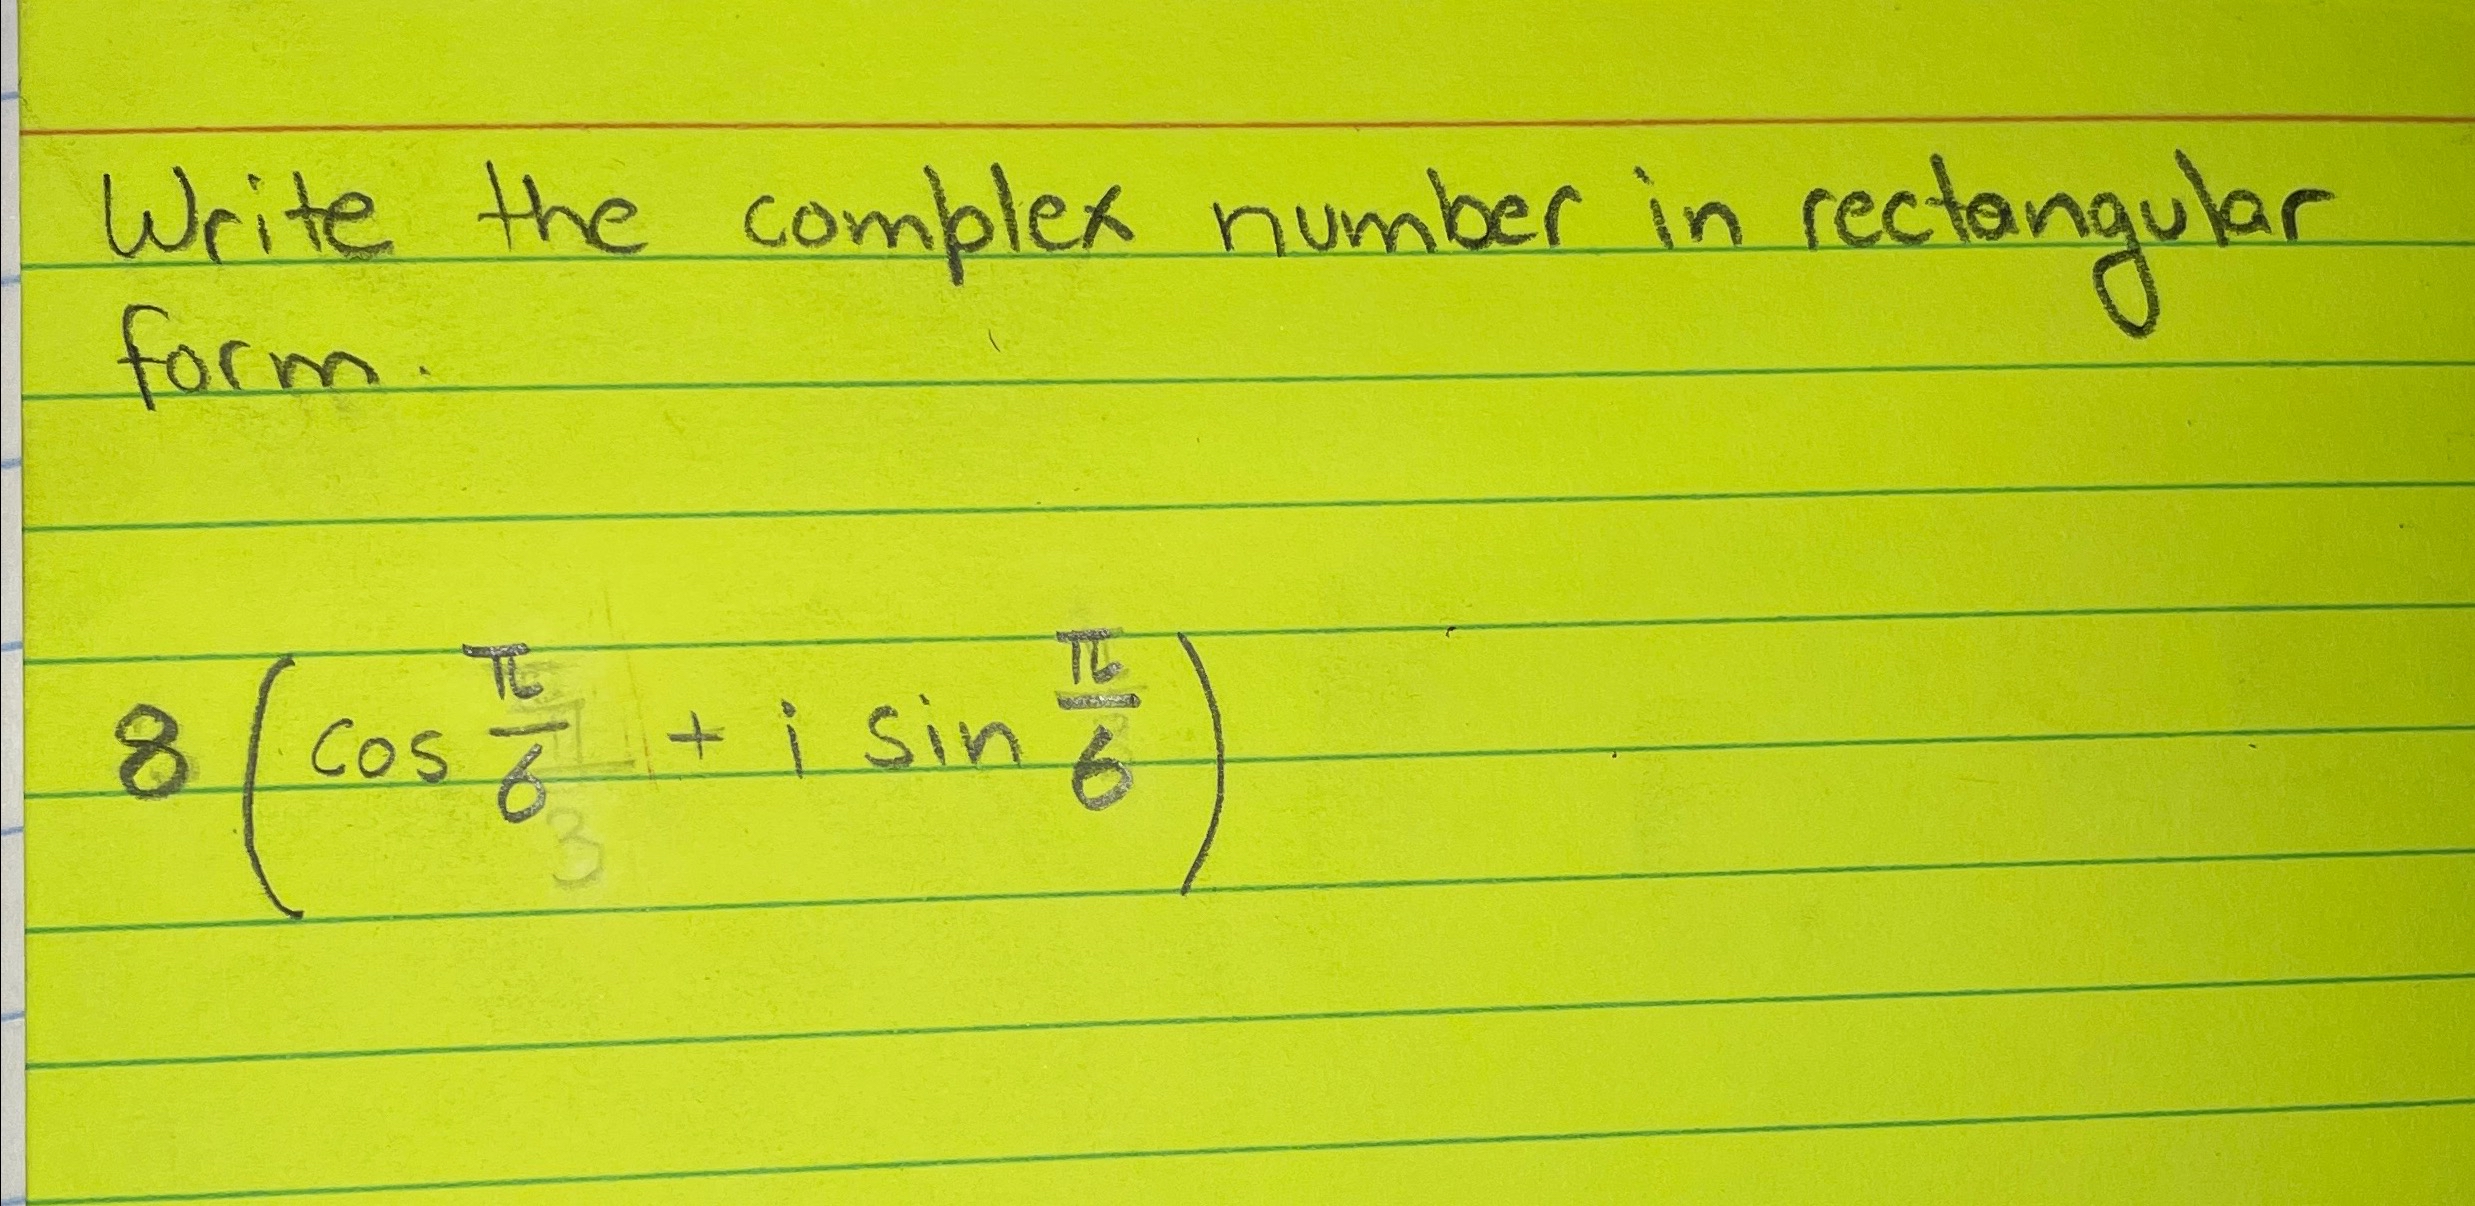 Write the complex number in rectangular
form.
8 ( cos π/6 + i sin π/6 )